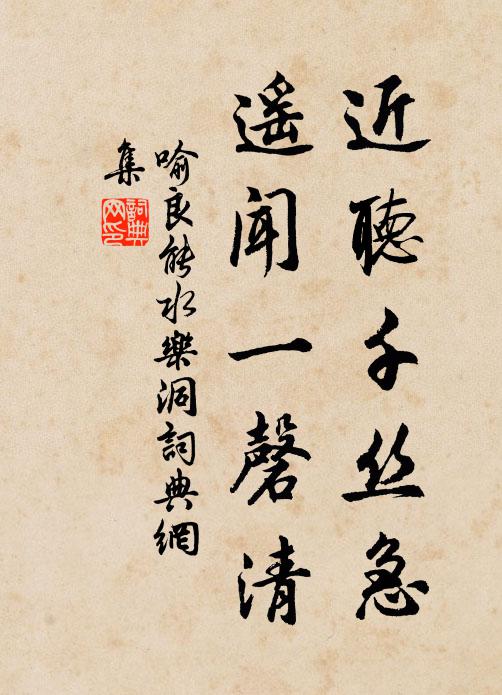 近聽千丝急
遥闻一磬清
喻良能水樂洞詞典網
集
詞典
网印